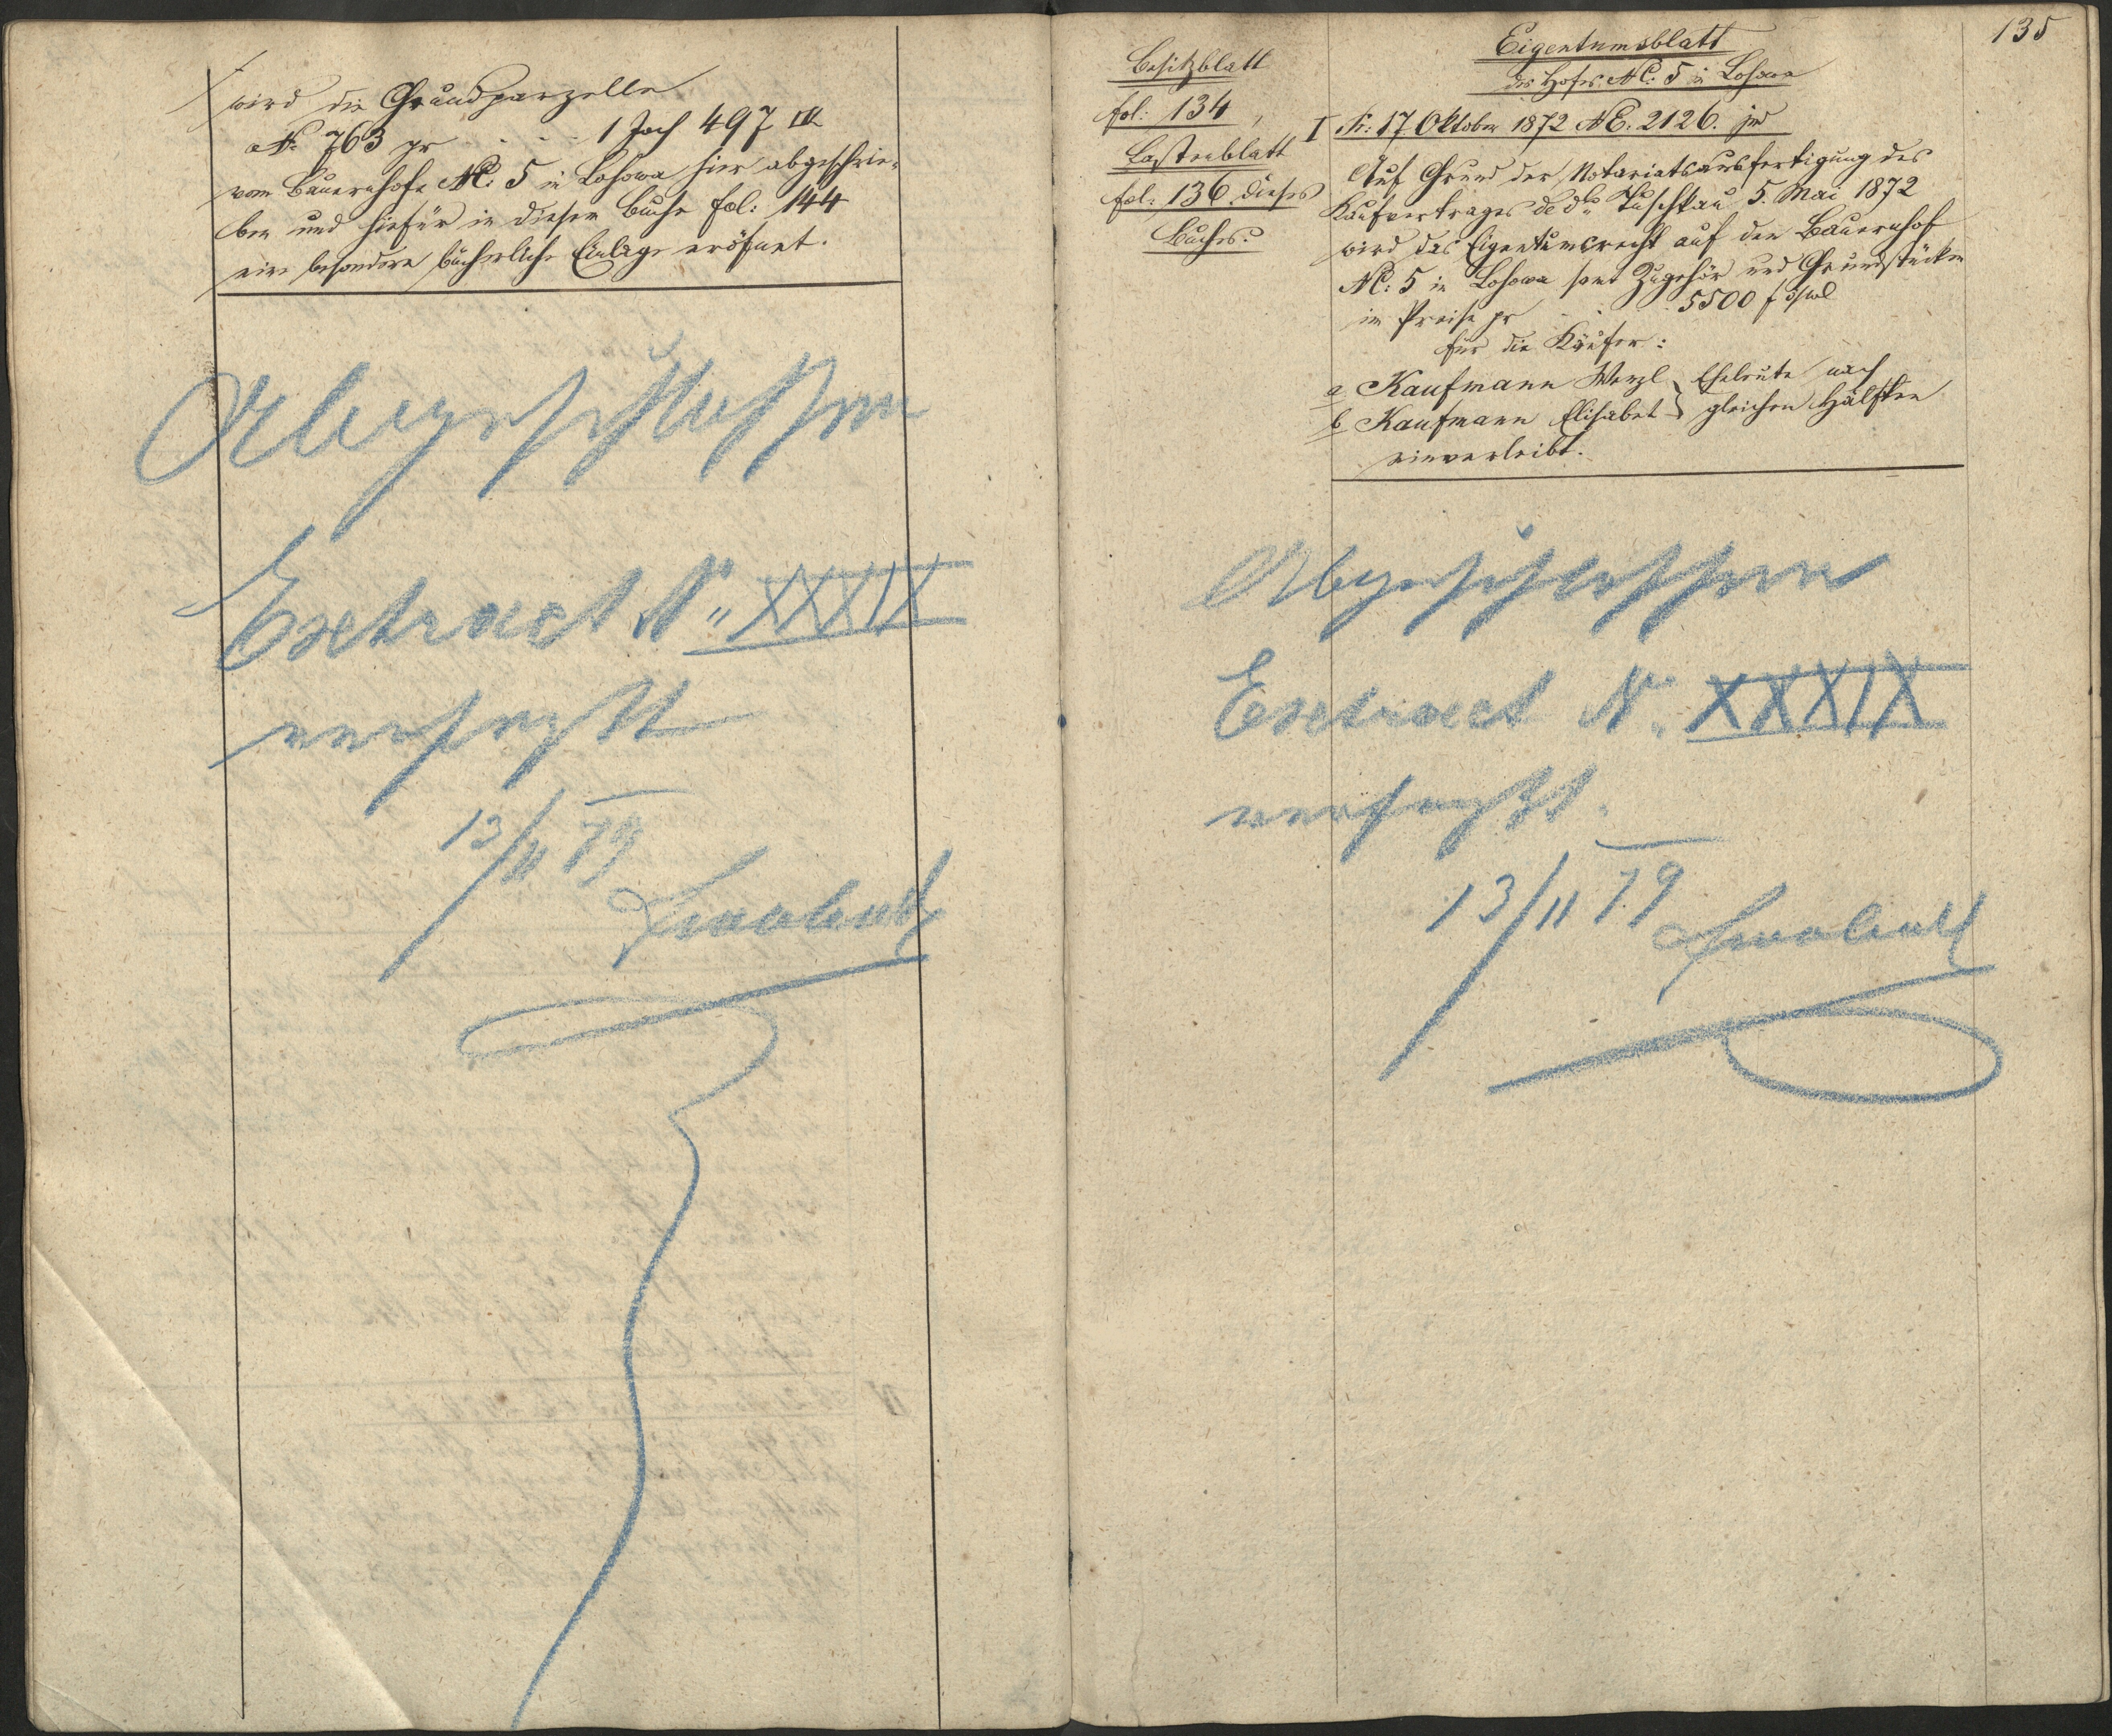 wird die Grundparzelle
No 763 pr - - - 1 Joch 497 □°
vom Bauernhofe NC: 5 in Losowa hier abgeschrie-
ben und hiefür in diesem Buche fol: 144
eine besondere bücherliche Einlage eröfnet.
Abgeschlossen
Extract No XXXIX
verfaßt
13/11 79
Besitzblatt
fol: 134,
Lastenblatt
fol: 136 dieses
Buches.
135
Eigentumsblatt
des Hofes NC: 5 in Losowa
I Pr: 17 Oktober 1872 NE. 2126. jud
Auf Grund der Notariatsausfertigung des
Kaufvertrages de dto Tuschkau 5. Mai 1872
wird das Eigentumsrecht auf den Bauernhof
NC: 5 in Losowa samt Zugehör und Grundstücken
im Preise pr - - 5500 f östWl
für die Käufer:
a Kaufmann Wenzl } Eheleute nach
b Kaufmann Elisabet } gleichen Hälften
einverleibt.
Abgeschlossen
Extract No XXXIX
verfaßt.
13/11 79